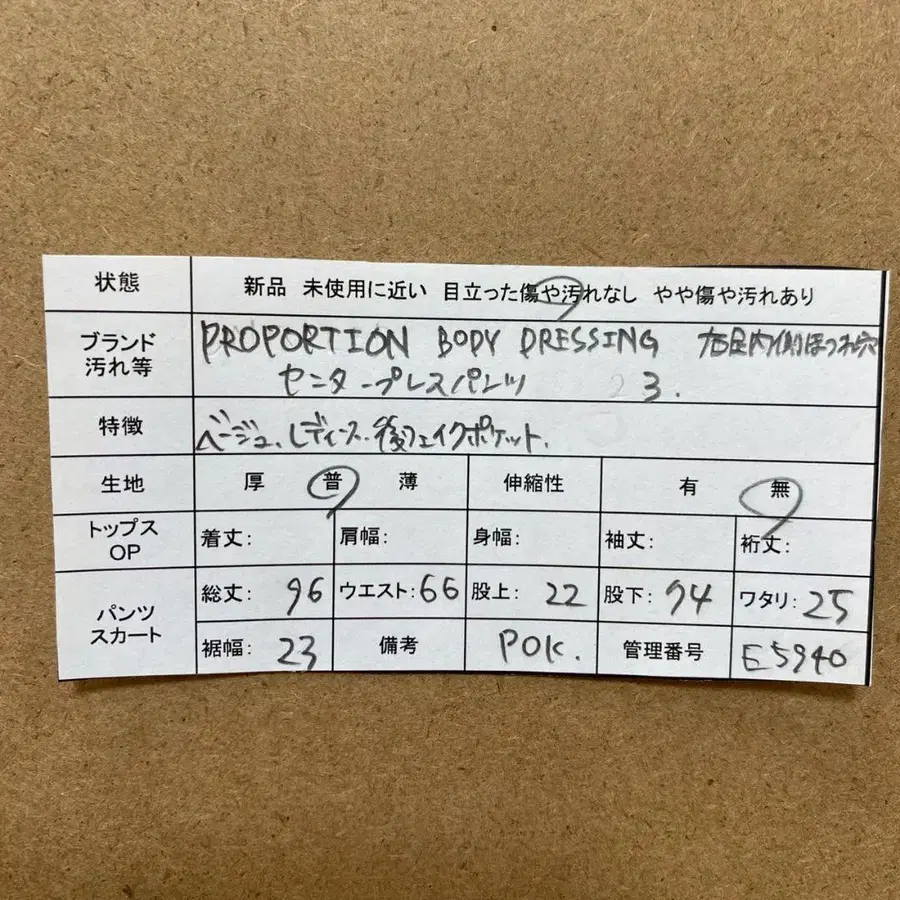 状態 新品 未使用に近い 目立った傷や汚れなし やや傷や汚れあり
ブランド PROPORTION BODY DRESSING 右足内側ほつれ穴
汚れ等 センタープレスパンツ 3.
特徴 ベージュ、レディース、後フェイクポケット、
生地 厚 普 薄 伸縮性 有 無
トップス 着丈: 肩幅: 身幅: 袖丈: 裄丈:
OP
総丈: 96 ウエスト: 66 股上: 22 股下: 74 ワタリ: 25
パンツ
スカート
裾幅: 23 備考 POK. 管理番号 E5940